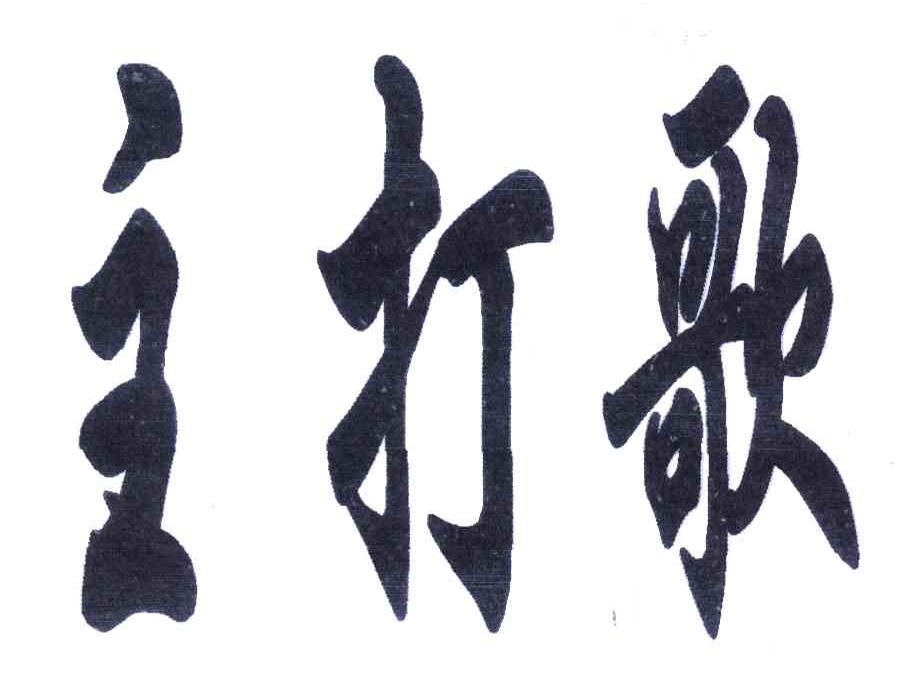 主打歌